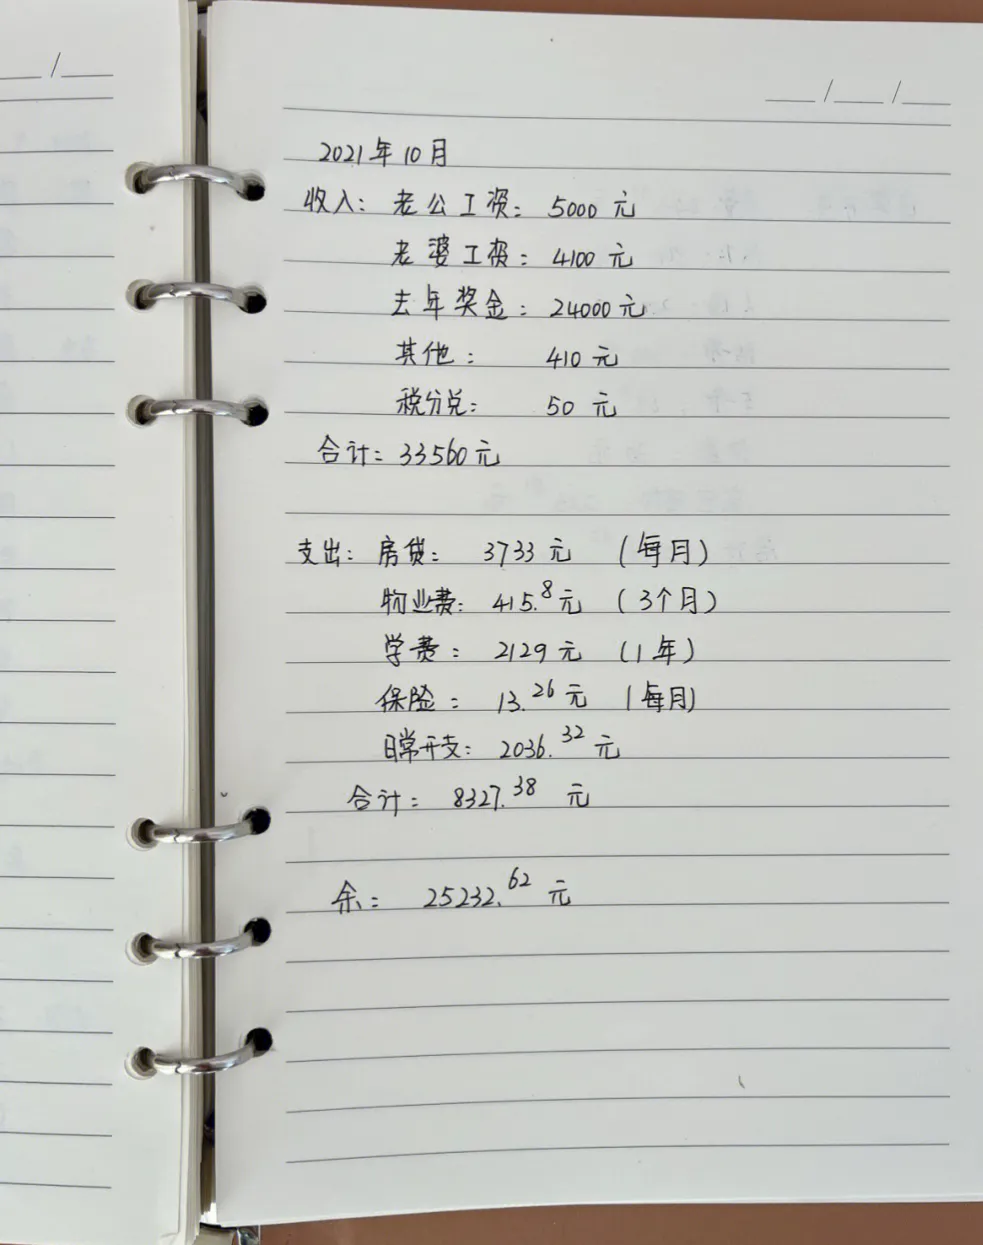 2021年10月
收入：老公工资：5000元
老婆工资：4100元
去年奖金：24000元
其他：410元
税分兑：50元
合计：33560元
支出：房贷：3733元（每月）
物业费：415.8元（3个月）
学费：2129元（1年）
保险：13.26元（每月）
日常开支：2036.32元
合计：8327.38元
余：25232.62元